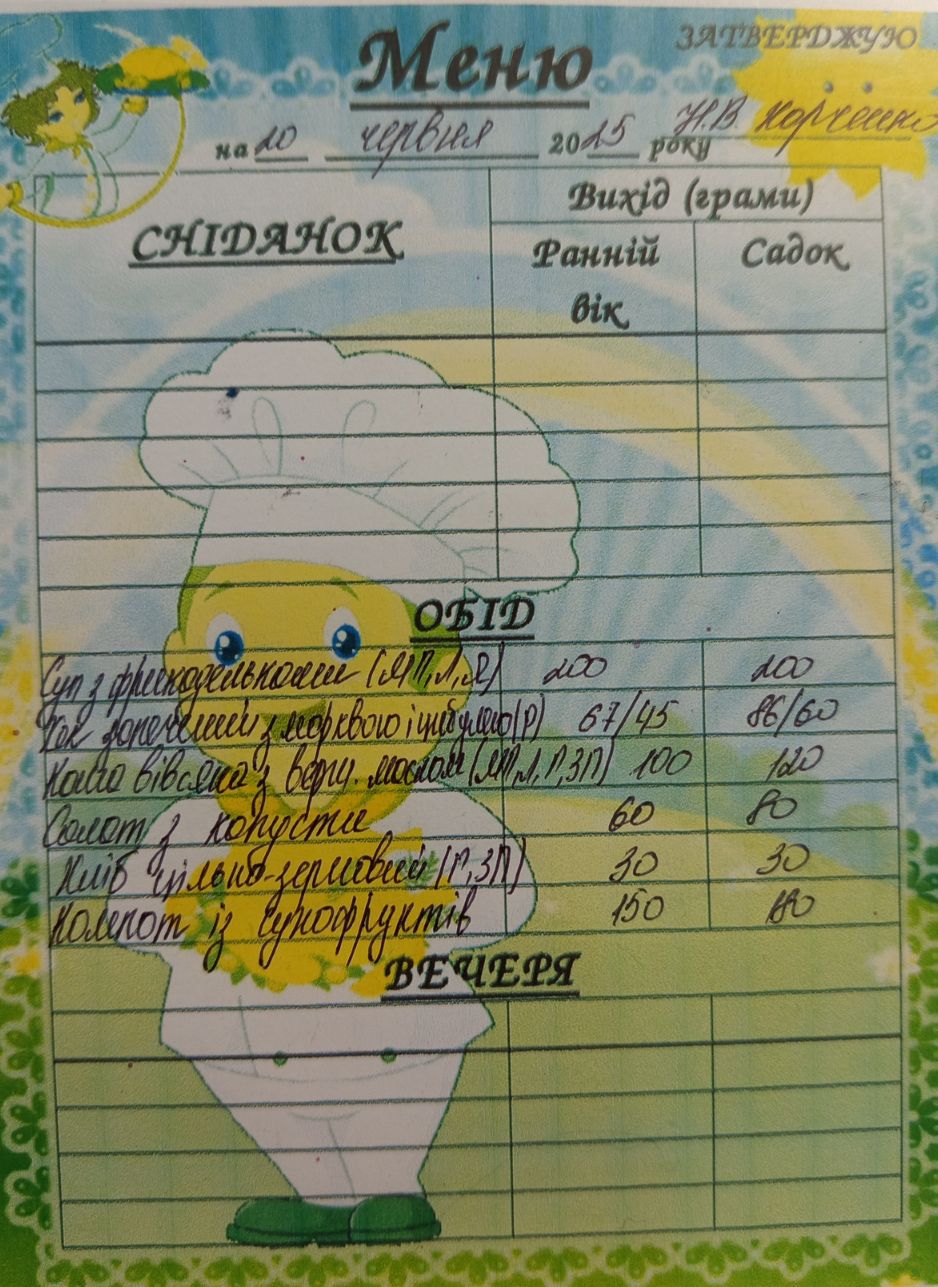 Меню
ЗАТВЕРДЖУЮ
на 20 червня 2025 року Н.В. Корченко
СНІДАНОК
Вихід (грами)
Ранній вік
Садок
ОБІД
Суп з фрикадельками (МП, Л, Я) 200 200
Хек запечений з морквою і цибулею (Р) 67/45 86/60
Каша вівсяна з верш. маслом (МП, Л, Г, ЗП) 100 120
Салат з капусти 60 80
Хліб цільно-зерновий (Г, ЗП) 30 30
Компот із сухофруктів 150 180
ВЕЧЕРЯ